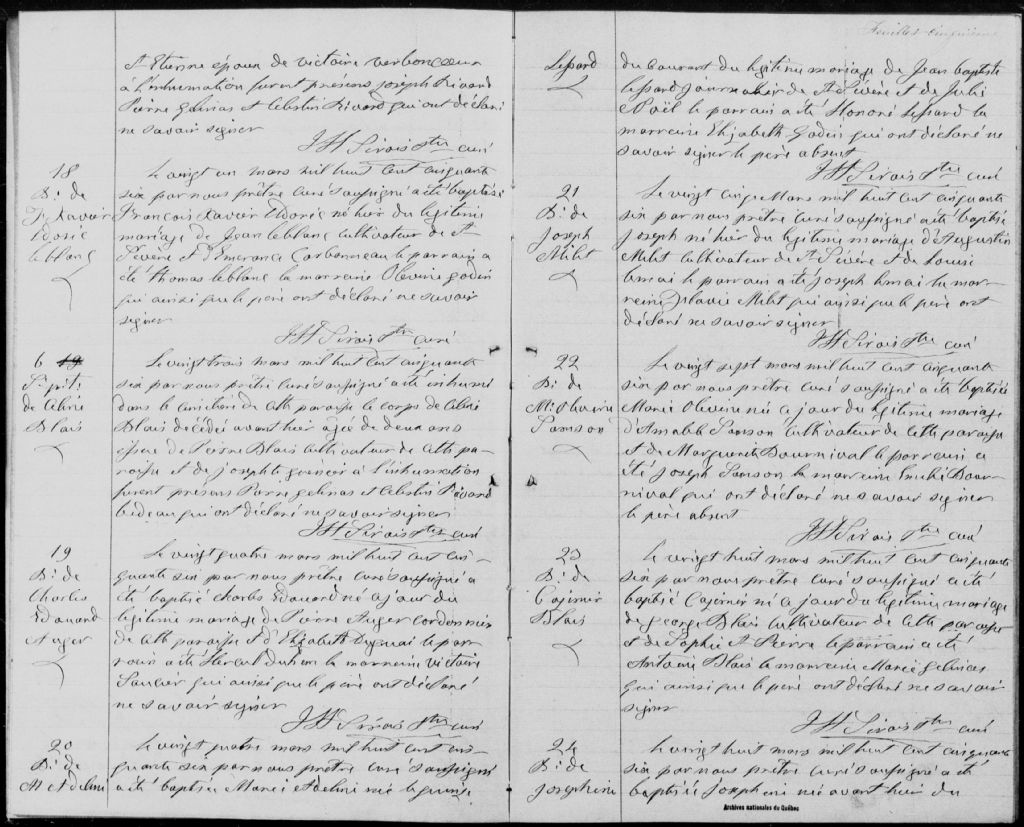 St Etienne époux de victoire verboncoeur
à l'inhumation furent présens Joseph Rivard
Pierre Gelinas et Celestin Rivard qui ont déclaré
ne savoir signer
JH Sirois Ptre curé
18
B: de
F: Xavier
Edoric
leblanc
Le vingt un mars mil huit cent cinquante
six par nous prêtre curé soussigné a été baptisé
François Xavier Edoric né hier du legitime
mariage de Jean leblanc cultivateur de St
Sévère et d'Emerance Carbonneau le parrain a
été thomas leblanc la marreine Olevine godin
qui ainsi que le père ont déclaré ne savoir
signer
JH Sirois Ptre curé
6 19
S: pte
de Celina
Blais
Le vingt trois mars mil huit cent cinquante
six par nous prêtre curé soussigné a été inhumé
dans le cimetière de cette paroisse le corps de Celine
Blais decédée avant hier agée de deux ans
de Pierre Blais cultivateur de cette pa-
roisse et de Josephte à l'inhumation
furent présens Pierre gelinas et Celestin Rivard
bedeau qui ont déclaré ne savoir signer
JH Sirois Ptre curé
19
B: de
Charles
Edouard
Auger
Le vingt quatre mars mil huit cent cin-
quante six par nous prêtre curé soussigné a
été baptisé Charles Edouard né ce jour du
legitime mariage de Pierre Auger cordonnier
de cette paroisse et d'Elizabeth le par-
rain a été Hercul Duhem la marreine victoire
Saucier qui ainsi que le père ont déclaré
ne savoir signer
JH Sirois Ptre curé
20
B: de
M Adeline
Le vingt quatre mars mil huit cent cin-
quante six par nous prêtre curé soussigné
a été baptisée Marie Adeline née le quinze
Feuillet cinquième
Lesard
du courant du legitime mariage de Jean baptiste
lesard journalier de St Sévère et de Julie
Noël le parrain a été Honoré lesard la
marreine Elizabeth Godin qui ont déclaré ne
savoir signer le père absent
JH Sirois Ptre curé
21
B: de
Joseph
Milet
Le vingt cinq Mars mil huit cent cinquante
six par nous prêtre curé soussigné a été baptisé
Joseph né hier du legitime mariage d'Augustin
Milet cultivateur de St Sévère et de Louise
lemai le parrain a été Joseph lemai la mar-
reine Flavie Milet qui ainsi que le père ont
déclaré ne savoir signer
JH Sirois Ptre curé
22
B: de
M: Olivine
Samson
Le vingt sept mars mil huit cent cinquante
six par nous prêtre curé soussigné a été baptisée
Marie Olivine née ce jour du legitime mariage
d'Amable Samson cultivateur de cette paroisse
et de Marguerite Bournival le parrain a
été Joseph Samson la marreine Bour-
nival qui ont déclaré ne savoir signer
le père absent
JH Sirois Ptre curé
23
B: de
Casimir
Blais
Le vingt huit mars mil huit cent cinquante
six par nous prêtre curé soussigné a été
baptisé Casimir né ce jour du legitime mariage
de George Blais cultivateur de cette paroisse
et de Sophie St Pierre le parrain a été
Antoine Blais la marreine Marie Gelinas
qui ainsi que le père ont déclaré ne savoir
signer
JH Sirois Ptre curé
24
B: de
Josephine
Le vingt huit mars mil huit cent cinquante
six par nous prêtre curé soussigné a été
baptisée Josephine née avant hier du
Archives nationales du Québec